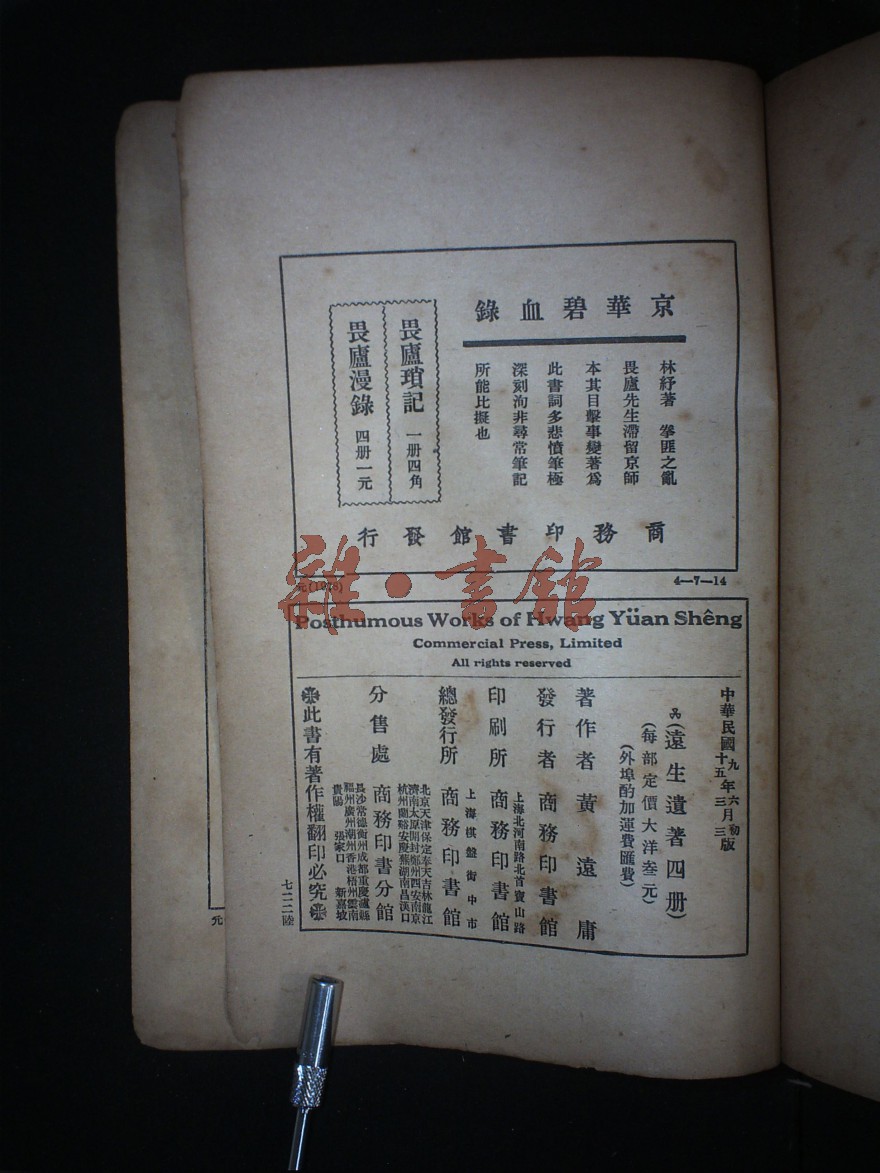 京華碧血錄
林紓著 拳匪之亂
畏廬先生滯留京師
本其目擊事變著爲
此書詞多悲憤筆極
深刻洵非尋常筆記
所能比擬也
畏廬瑣記 一册四角
畏廬漫錄 四册一元
商務印書館發行
雜·書館
元(1926)
4—7—14
Posthumous Works of Hwang Yüan Shêng
Commercial Press, Limited
All rights reserved
中華民國九年六月初版
十五 三 三
(遠生遺著四册)
(每部定價大洋叁元)
(外埠酌加運費匯費)
著作者 黃遠庸
發行者 商務印書館
上海北河南路北首寶山路
印刷所 商務印書館
上海棋盤街中市
總發行所 商務印書館
北京天津保定奉天吉林龍江
濟南太原開封鄭州西安南京
杭州蘭谿安慶蕪湖南昌漢口
分售處 商務印書分館
長沙常德衡州成都重慶瀘縣
福州廣州潮州香港梧州雲南
貴陽 張家口 新嘉坡
此書有著作權翻印必究
七二二陸
元